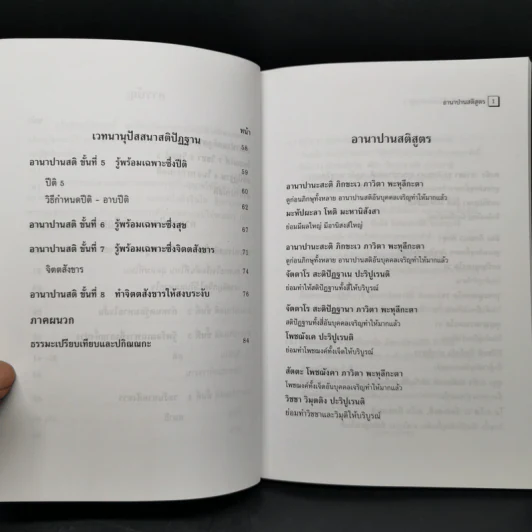 หน้า
เวทนานุปัสสนาสติปัฏฐาน 58
อานาปานสติ ขั้นที่ 5 รู้พร้อมเฉพาะซึ่งปีติ 59
ปีติ 5 60
วิธีกำหนดปีติ - อาบปีติ 62
อานาปานสติ ขั้นที่ 6 รู้พร้อมเฉพาะซึ่งสุข 67
อานาปานสติ ขั้นที่ 7 รู้พร้อมเฉพาะซึ่งจิตตสังขาร 72
จิตตสังขาร 74
อานาปานสติ ขั้นที่ 8 ทำจิตตสังขารให้สงบระงับ 76
ภาคผนวก
ธรรมะเปรียบเทียบและปกิณณกะ 84
อานาปานสติสูตร 1
อานาปานสติสูตร
อานาปานะสะติ ภิกขะเว ภาวิตา พะหุลีกะตา
ดูก่อนภิกษุทั้งหลาย อานาปานสติอันบุคคลเจริญทำให้มากแล้ว
มะหัปผะลา โหติ มะหานิสังสา
ย่อมมีผลใหญ่ มีอานิสงส์ใหญ่
อานาปานะสะติ ภิกขะเว ภาวิตา พะหุลีกะตา
ดูก่อนภิกษุทั้งหลาย อานาปานสติอันบุคคลเจริญทำให้มากแล้ว
จัตตาโร สะติปัฏฐาเน ปะริปูเรนติ
ย่อมทำให้สติปัฏฐานทั้งสี่ให้บริบูรณ์
จัตตาโร สะติปัฏฐานา ภาวิตา พะหุลีกะตา
สติปัฏฐานทั้งสี่อันบุคคลเจริญทำให้มากแล้ว
โพชฌังเค ปะริปูเรนติ
ย่อมทำโพชฌงค์ทั้งเจ็ดให้บริบูรณ์
สัตตะ โพชฌังคา ภาวิตา พะหุลีกะตา
โพชฌงค์ทั้งเจ็ดอันบุคคลเจริญทำให้มากแล้ว
วิชชา วิมุตติง ปะริปูเรนติ
ย่อมทำวิชชาและวิมุติให้บริบูรณ์